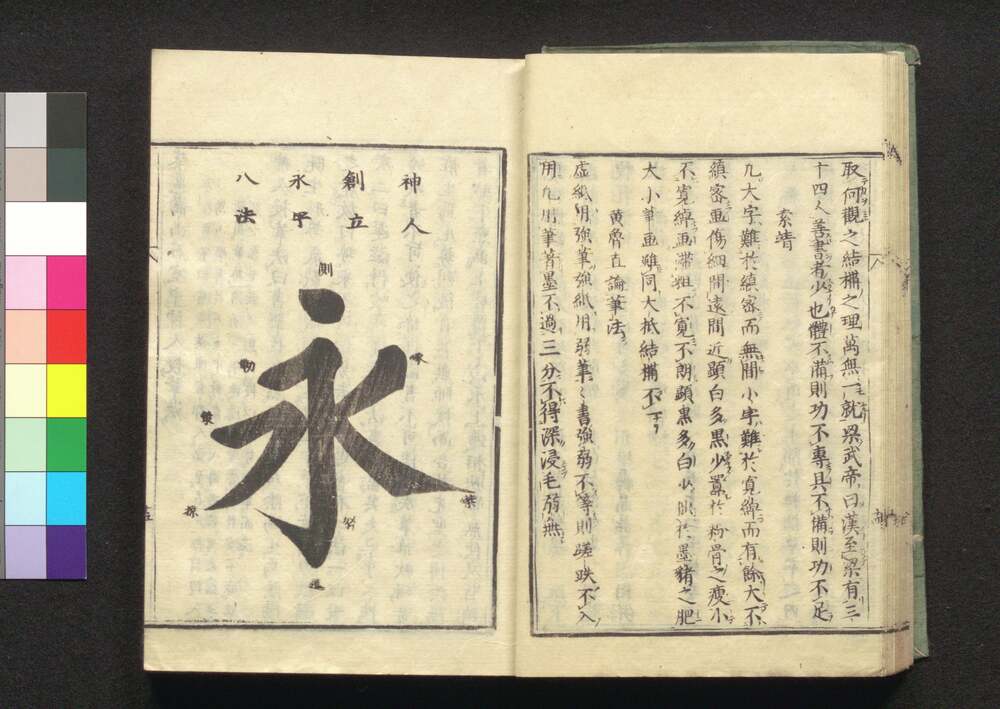 取何觀之結構之理萬無一就梁武帝曰漢至梁有三
十四人善書者少也體不備則功不專具不備則功不足
索靖
凡大字難於縝密而無間小字難於寬綽而有餘大不
縝密画傷細間遠間近顕白多黒少 於粉骨之瘦小
不寬綽画滞粗不寛不朗顕黒多白少 於墨豬之肥
大小筆画雖同大抵結構不
黄魯直論筆法
虚紙用強筆強紙用弱筆〻書強弱不等則蹉跌不入
用凡用筆 墨不過三分不得深浸毛弱無
神人
創立
永字
八法
側
勒
策
掠
啄
磔
努
趯